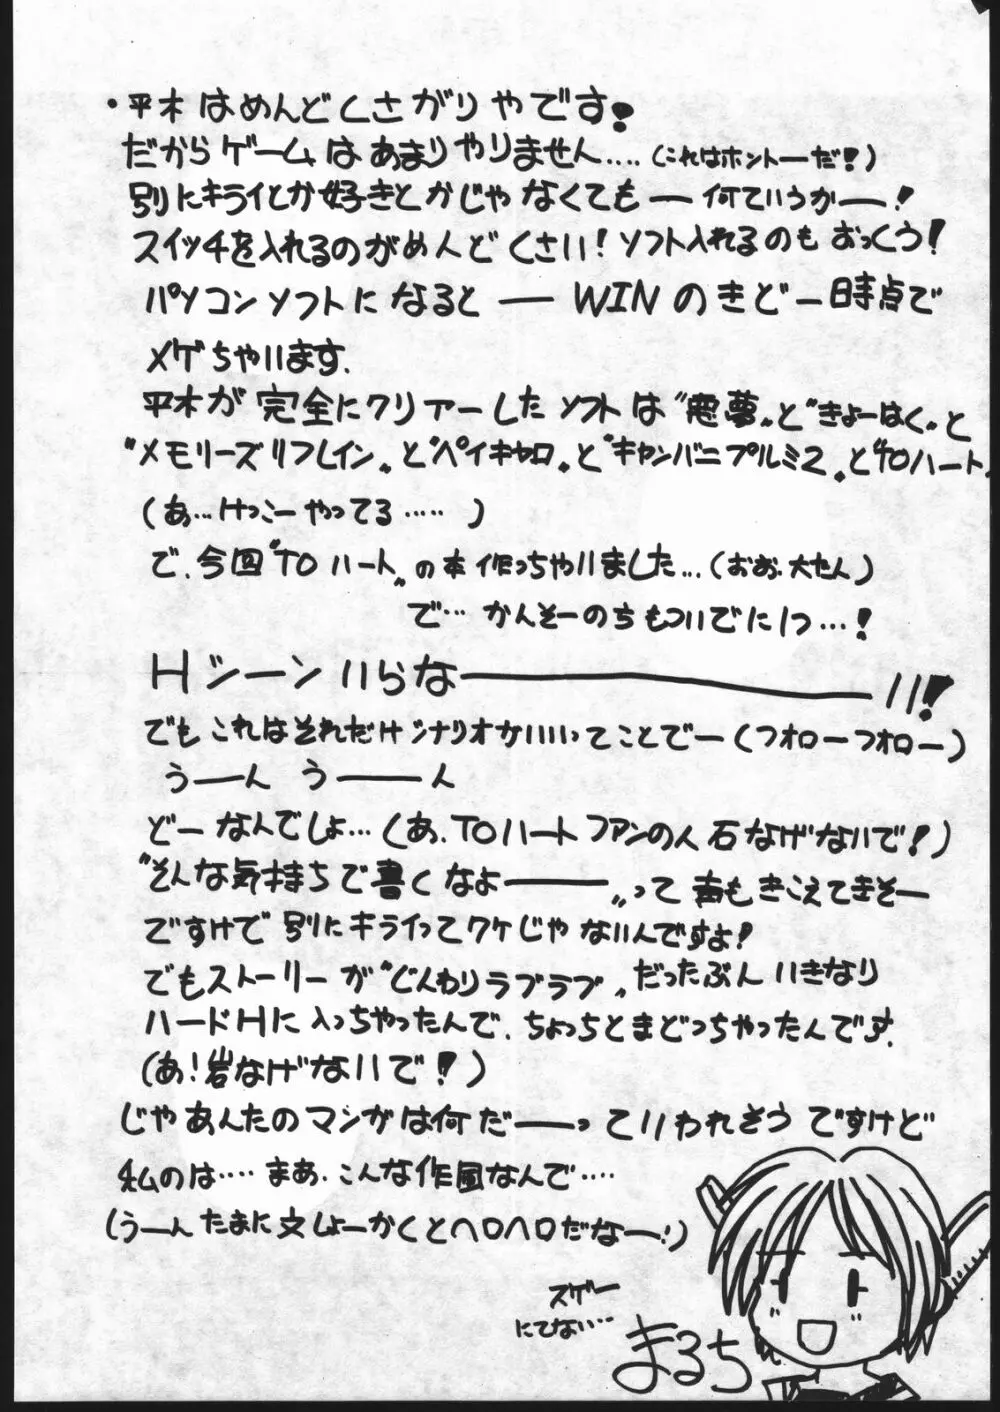 ・平木はめんどくさがりやです!
だからゲームはあまりやりません….(これはホントーだ!)
別にキライとか好きとかじゃなくてもー何ていうかー!
スイッチを入れるのがめんどくさい!ソフト入れるのもおっくう!
パソコンソフトになるとーWINのきどー時点で
メゲちゃいます.
平木が完全にクリアーしたソフトは"悪夢"と"きょーはく"と
"メモリーズリフレイン"と"ペイキャロ"と"キャンバニプルミ2"と"TOハート"
(あ…けっこーやってる……)
で.今回"TOハート"の本作っちゃいました…(おお.大たん)
で… かんそーのちもついでに1つ…!
Hシーンいらなーーーい!
でもこれはそれだけシナリオがいいってことでー(フォローフォロー)
うーん うーん
どーなんでしょ…(あ.TOハートファンの人石なげないで!)
"そんな気持ちで書くなよーー"って声もきこえてきそー
ですけで別にキライってワケじゃないんですよ!
でもストーリーが"じんわりラブラブ"だったぶんいきなり
ハードHに入っちゃったんで.ちょっとまどっちゃったんです.
(あ!岩なげないで!)
じゃあんたのマンガは何だーーっていわれそうですけど
私のは….まあ.こんな作風なんで….
(うーんたまに文しょーかくとヘロヘロだなー!)
スゲー
にてない…
まるち